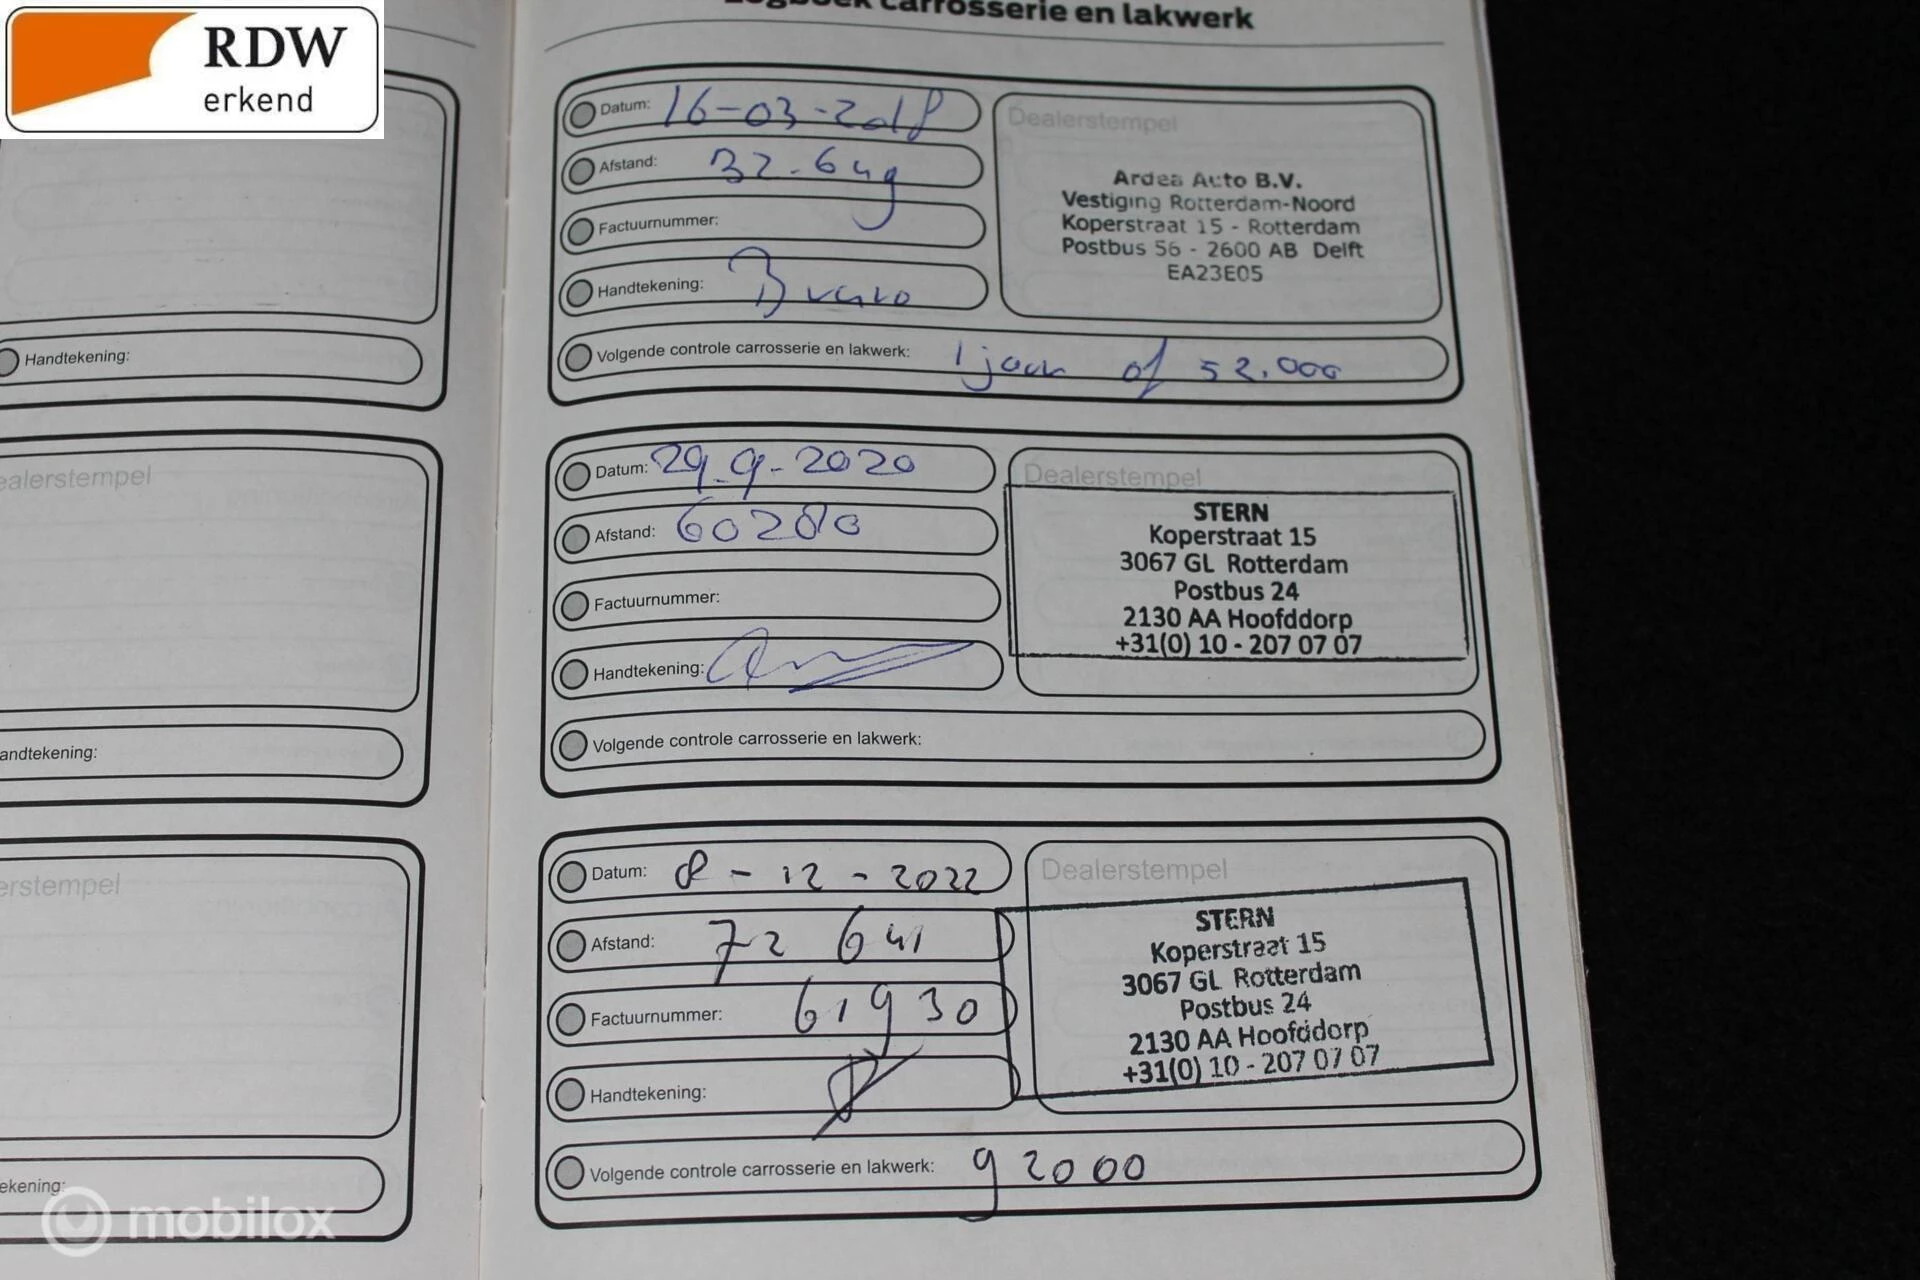 RDW
erkend
Handtekening:
ealerstempel
andtekening:
erstempel
ekening:
mobilox
Logboek carrosserie en lakwerk
Datum: 16-03-2018
Afstand: 32.649
Factuurnummer:
Handtekening:
Volgende controle carrosserie en lakwerk: 1 jaar of 52.000
Dealerstempel
Ardea Auto B.V.
Vestiging Rotterdam-Noord
Koperstraat 15 - Rotterdam
Postbus 56 - 2600 AB Delft
EA23E05
Datum: 29-9-2020
Afstand: 60280
Factuurnummer:
Handtekening:
Volgende controle carrosserie en lakwerk:
Dealerstempel
STERN
Koperstraat 15
3067 GL Rotterdam
Postbus 24
2130 AA Hoofddorp
+31(0) 10 - 207 07 07
Datum: 8-12-2022
Afstand: 72 641
Factuurnummer: 61930
Handtekening:
Volgende controle carrosserie en lakwerk: 92000
Dealerstempel
STERN
Koperstraat 15
3067 GL Rotterdam
Postbus 24
2130 AA Hoofddorp
+31(0) 10 - 207 07 07